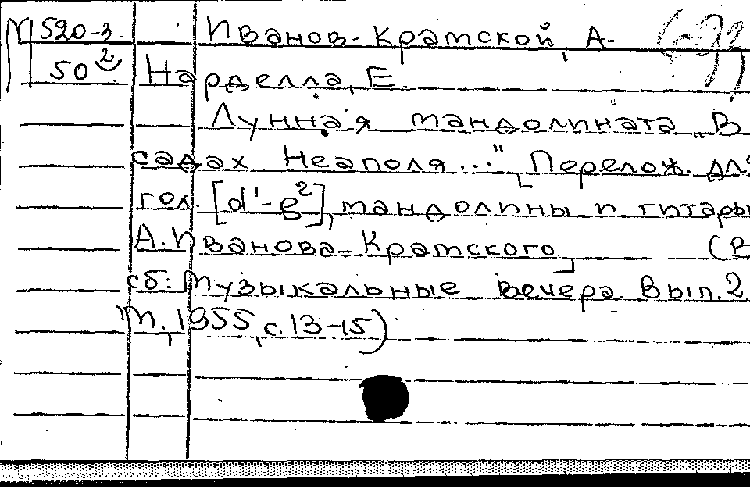 М 520-3 Иванов-Крамской, А.
50² Нарделла, Е.
Лунная мандолината „В
садах Неаполя...", Перелож. для
гол. [d'-g²], мандолины и гитары
А. Иванова-Крамского, (В
сб: Музыкальные вечера. Вып. 2
М., 1955, с. 13-15)